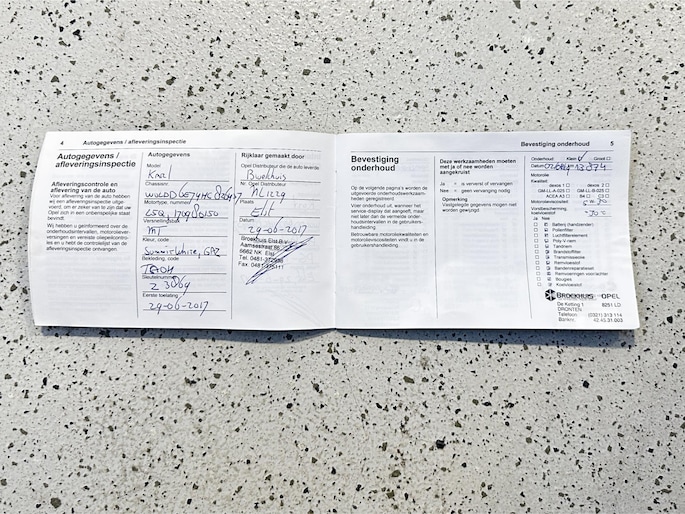 4 Autogegevens / afleveringsinspectie
Autogegevens /
afleveringsinspectie
Afleveringscontrole en
aflevering van de auto
Voor aflevering van de auto hebben
wij een afleveringsinspectie uitge-
voerd, om er zeker van te zijn dat uw
Opel zich in een onberispelijke staat
bevindt.
Wij hebben u geïnformeerd over de
onderhoudsintervallen, motorolie ver-
versingen en vereiste oliepeilcontro-
les en u hebt de controlelijst van de
afleveringsinspectie ontvangen.
Autogegevens
Model
Karl
Chassisnr.
Motortype, nummer
Versnellingsbak
MT
Kleur, code
Summit White, GAZ
Bekleding, code
Sleutelnummer
Eerste toelating
29-06-2017
Rijklaar gemaakt door
Opel Distributeur die de auto leverde
Broekhuis
Nr. Opel Distributeur
NL1229
Plaats
Elst
Datum
29-06-2017
Broekhuis Elst B.V.
Aamsestraat
6662 NK Elst
Tel. 0481-
Fax: 0481-
Bevestiging onderhoud 5
Bevestiging
onderhoud
Op de volgende pagina's worden de
uitgevoerde onderhoudswerkzaam-
heden geregistreerd.
Voer onderhoud uit, wanneer het
service-display dat aangeeft, maar
niet later dan de vermelde onder-
houdsintervallen in de gebruikers-
handleiding.
Betrouwbare motoroliekwaliteiten en
motorolieviscositeiten vindt u in de
gebruikershandleiding.
Deze werkzaamheden moeten
met ja of nee worden
aangekruist
Ja = is ververst of vervangen
Nee = geen vervanging nodig
Opmerking
Vastgelegde gegevens mogen niet
worden gewijzigd.
Onderhoud: Klein Groot
Datum
Motorolie
Kwaliteit
dexos 1 dexos 2
GM-LL-A-025 GM-LL-B-025
ACEA A3 B4 C3
Motorolieviscositeit
Vorstbescherming
koelvloeistof -30°C
Ja Nee
Batterij (handzender)
Pollenfilter
Luchtfilterelement
Poly-V-riem
Tandriem
Brandstoffilter
Transmissieolie
Remvloeistof
Bandenreparatieset
Remvoeringen voor/achter
Bougies
Koelvloeistof
BROEKHUIS OPEL
De Ketting 1 8251 LD
DRONTEN
Telefoon: (0321) 313 114
Banknr. 42.45.31.003